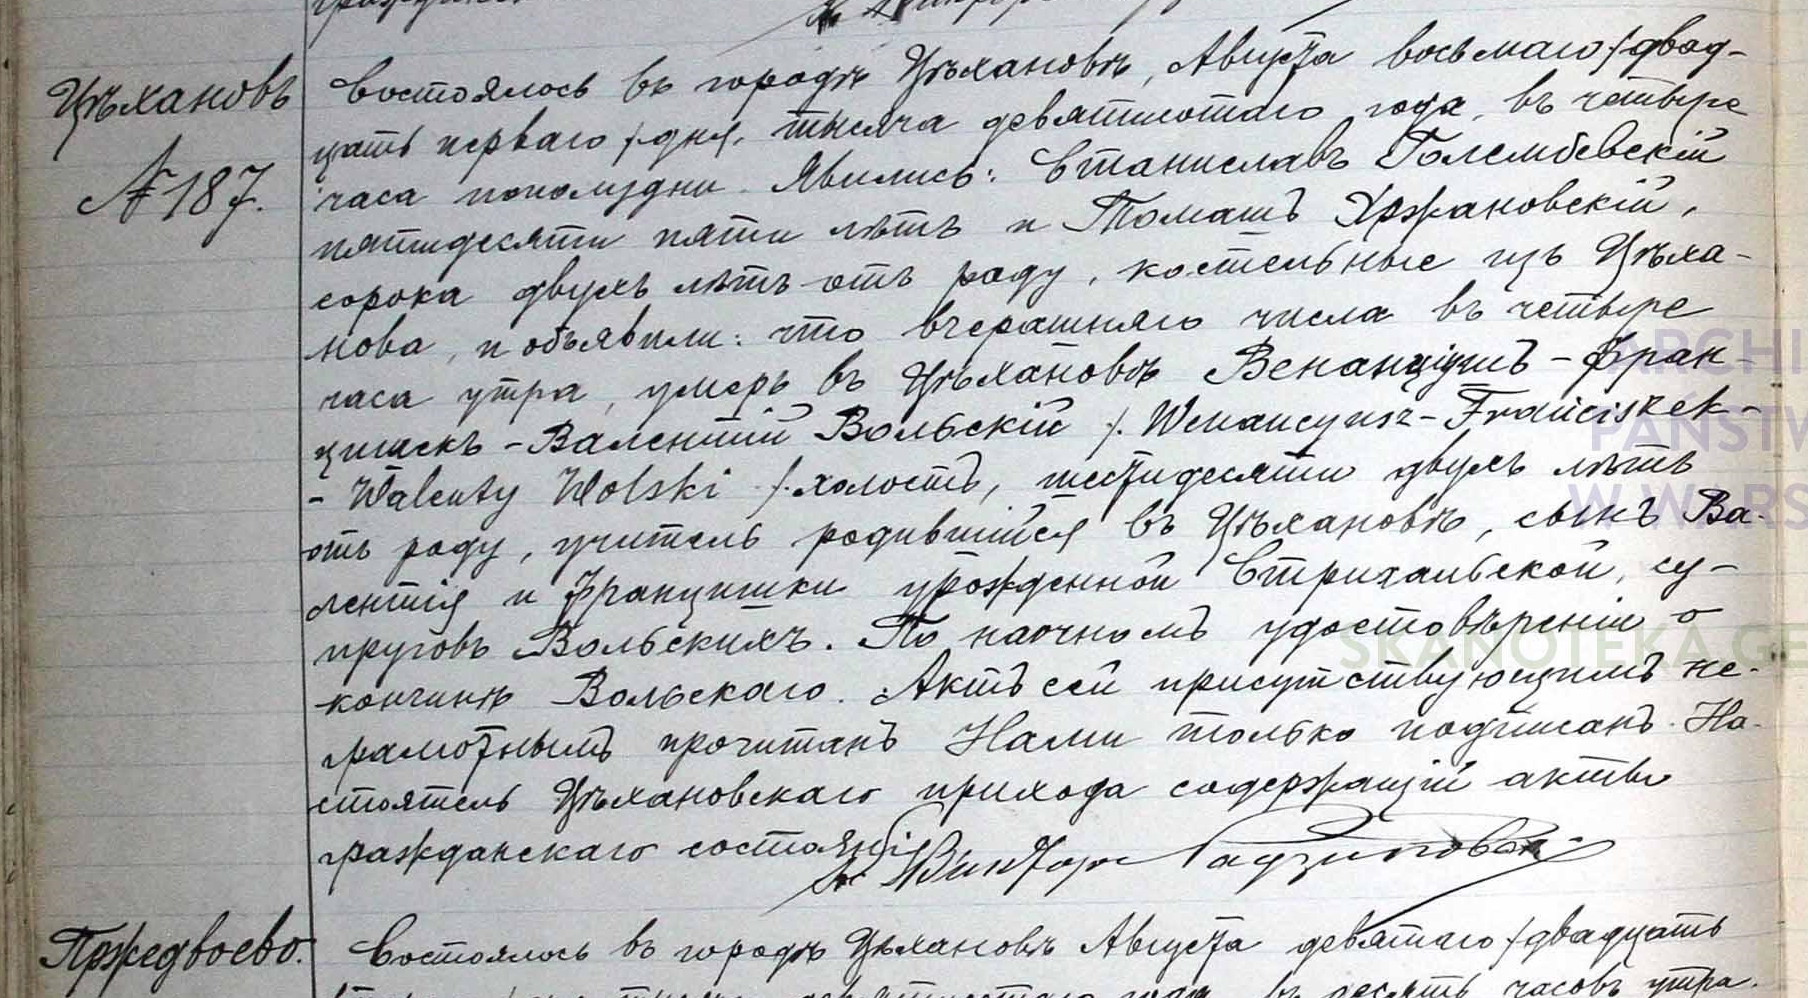 Цѣхановъ
№ 187.
Состоялось въ городѣ Цѣхановѣ, Августа восьмаго /двад-
цать перваго/ дня, тысяча девятисотаго года, въ четыре
часа пополудни. Явились: Станиславъ Голембевскій
пятидесяти пяти лѣтъ и Томашъ Хржановскій,
сорока двухъ лѣтъ отъ роду, костельные изъ Цѣха-
нова, и объявили: что вчерашняго числа въ четыре
часа утра, умеръ въ Цѣхановѣ Венанціушъ-Фран-
цишекъ-Валентій Вольскій /. Wenancyusz-Franciszek-
- Walenty Wolski ./ холостъ, шестидесяти двухъ лѣтъ
отъ роду, учитель родившійся въ Цѣхановѣ, сынъ Ва-
лентія и Францишки урожденной Стрихальской, су-
пруговъ Вольскихъ. По наочномъ удостовѣреніи о
кончинѣ Вольскаго. Актъ сей присутствующимъ не-
грамотнымъ прочитанъ Нами только подписанъ. На-
стоятель Цѣхановскаго прихода содержащій акты
гражданскаго состоянія Кс. Викторъ
Пржедвоево.
Состоялось въ городѣ Цѣхановѣ Августа девятаго /двадцать
въ десять часовъ утра.
ARCHI
PAŃSTW
W WARS
SKANOTEKA.GE